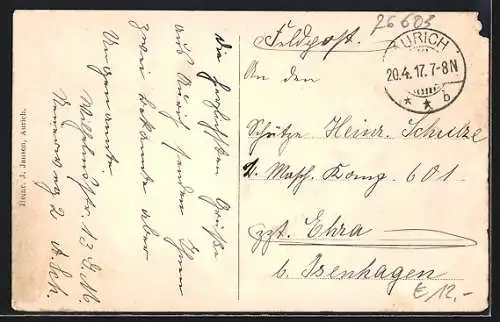 26603
Feldpost.
AURICH
20.4.17.7-8N
* * b
An den
Schütze Heinr. Schulze
1. Masch. Komp. 601.
zzt. Ehra
b. Isenhagen
€ 12,-
Die herzlichsten Grüße
aus Aurich senden Ihnen
zwei bekannte aber
Ungenannte.
Wilhelmstr. 13 G. M.
2 A. Sch.
Heinr. J. Jansen, Aurich.